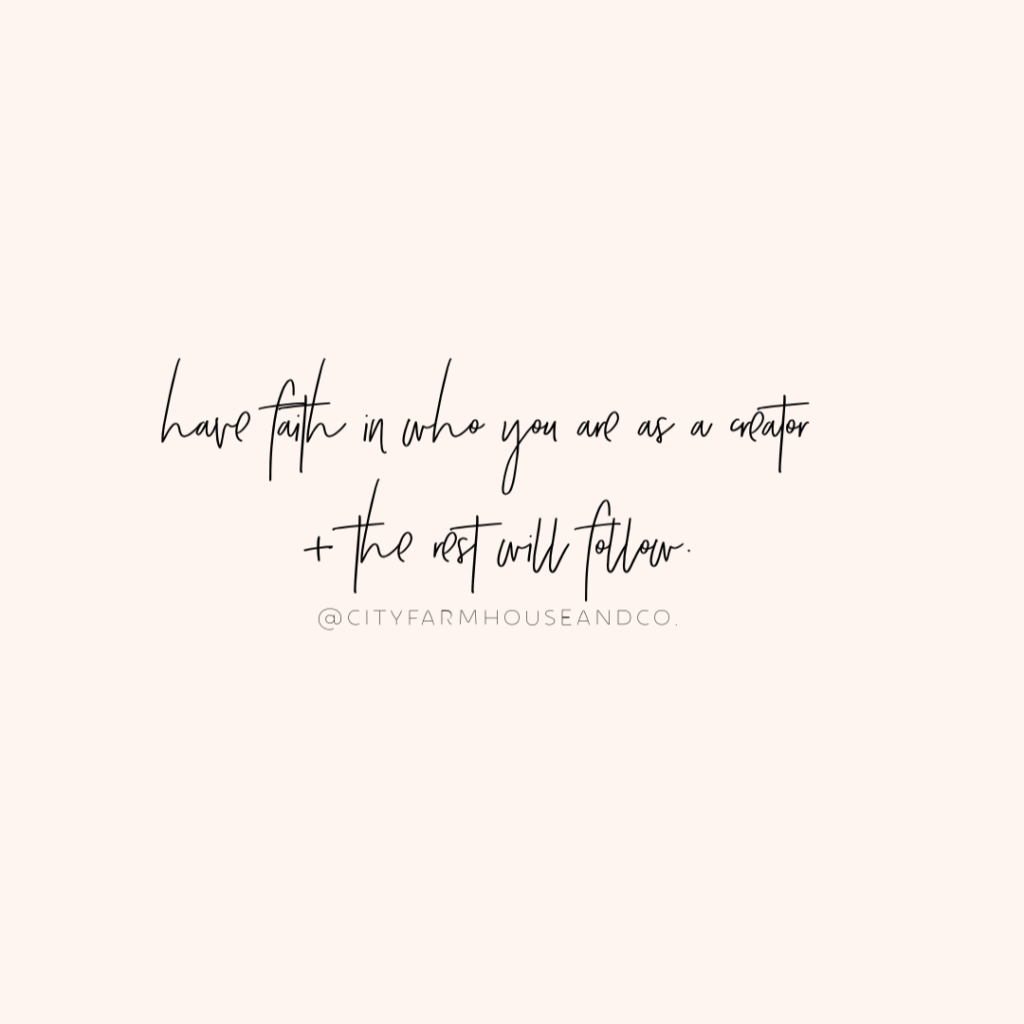 have faith in who you are as a creator
+ the rest will follow.
@CITYFARMHOUSEANDCO.